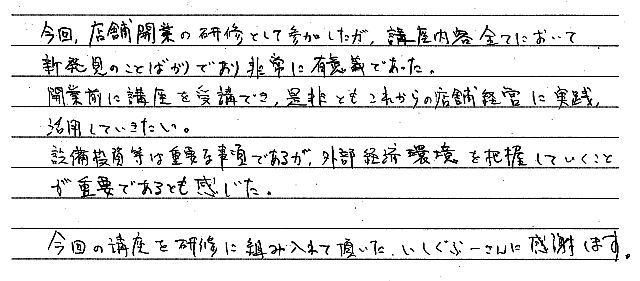 今回、店舗開業の研修として参加したが、講座内容全てにおいて
新発見のことばかりであり非常に有意義であった。
開業前に講座を受講でき、是非ともこれからの店舗経営に実践、
活用していきたい。
設備投資等は重要な事項であるが、外部経済環境を把握していくこと
が重要であるとも感じた。
今回の講座を研修に組み入れて頂いた、いしぐふーさんに感謝します。